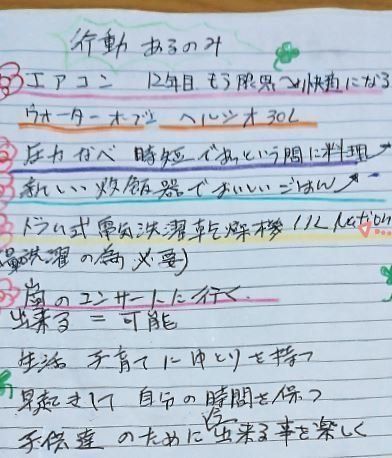 行動 あるのみ
エアコン 12年目 もう限界→快適になる
ウォーターオーブン ヘルシオ30L
圧力なべ 時短であっという間に料理
新しい炊飯器でおいしいごはん
ドラム式電気洗濯乾燥機 11L Action
洗濯の為必要)
嵐のコンサートに行く
出来る = 可能
生活 子育てにゆとりを持つ
早起きして 自分の時間を保つ
子供達のために 出来る事を楽しく